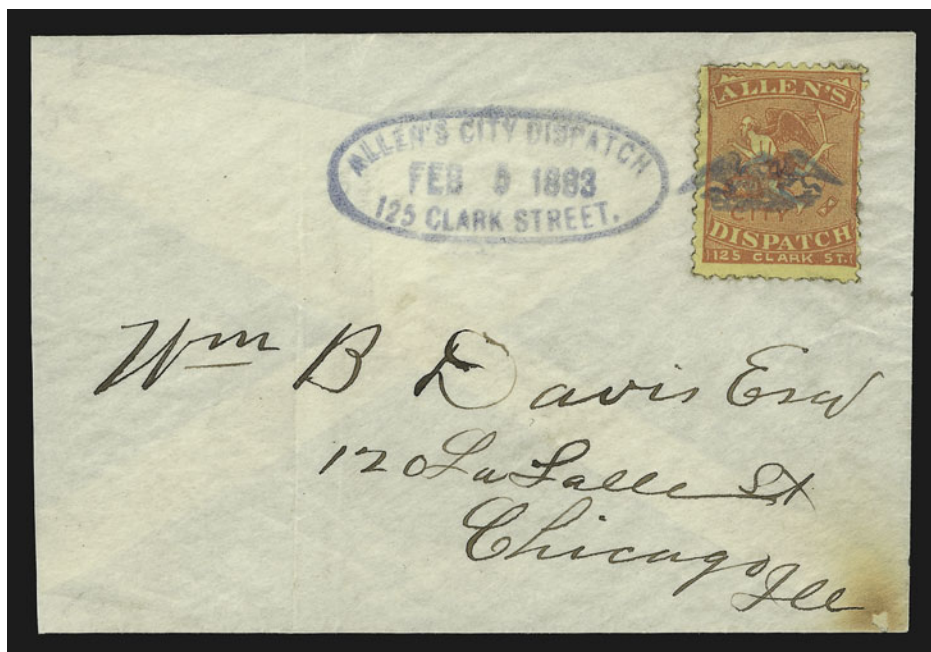 ALLEN'S CITY DISPATCH
FEB 5 1883
125 CLARK STREET.
ALLEN'S
CITY
DISPATCH
125 CLARK ST.
Wm B Davis Esq
120 LaSalle St
Chicago Ill